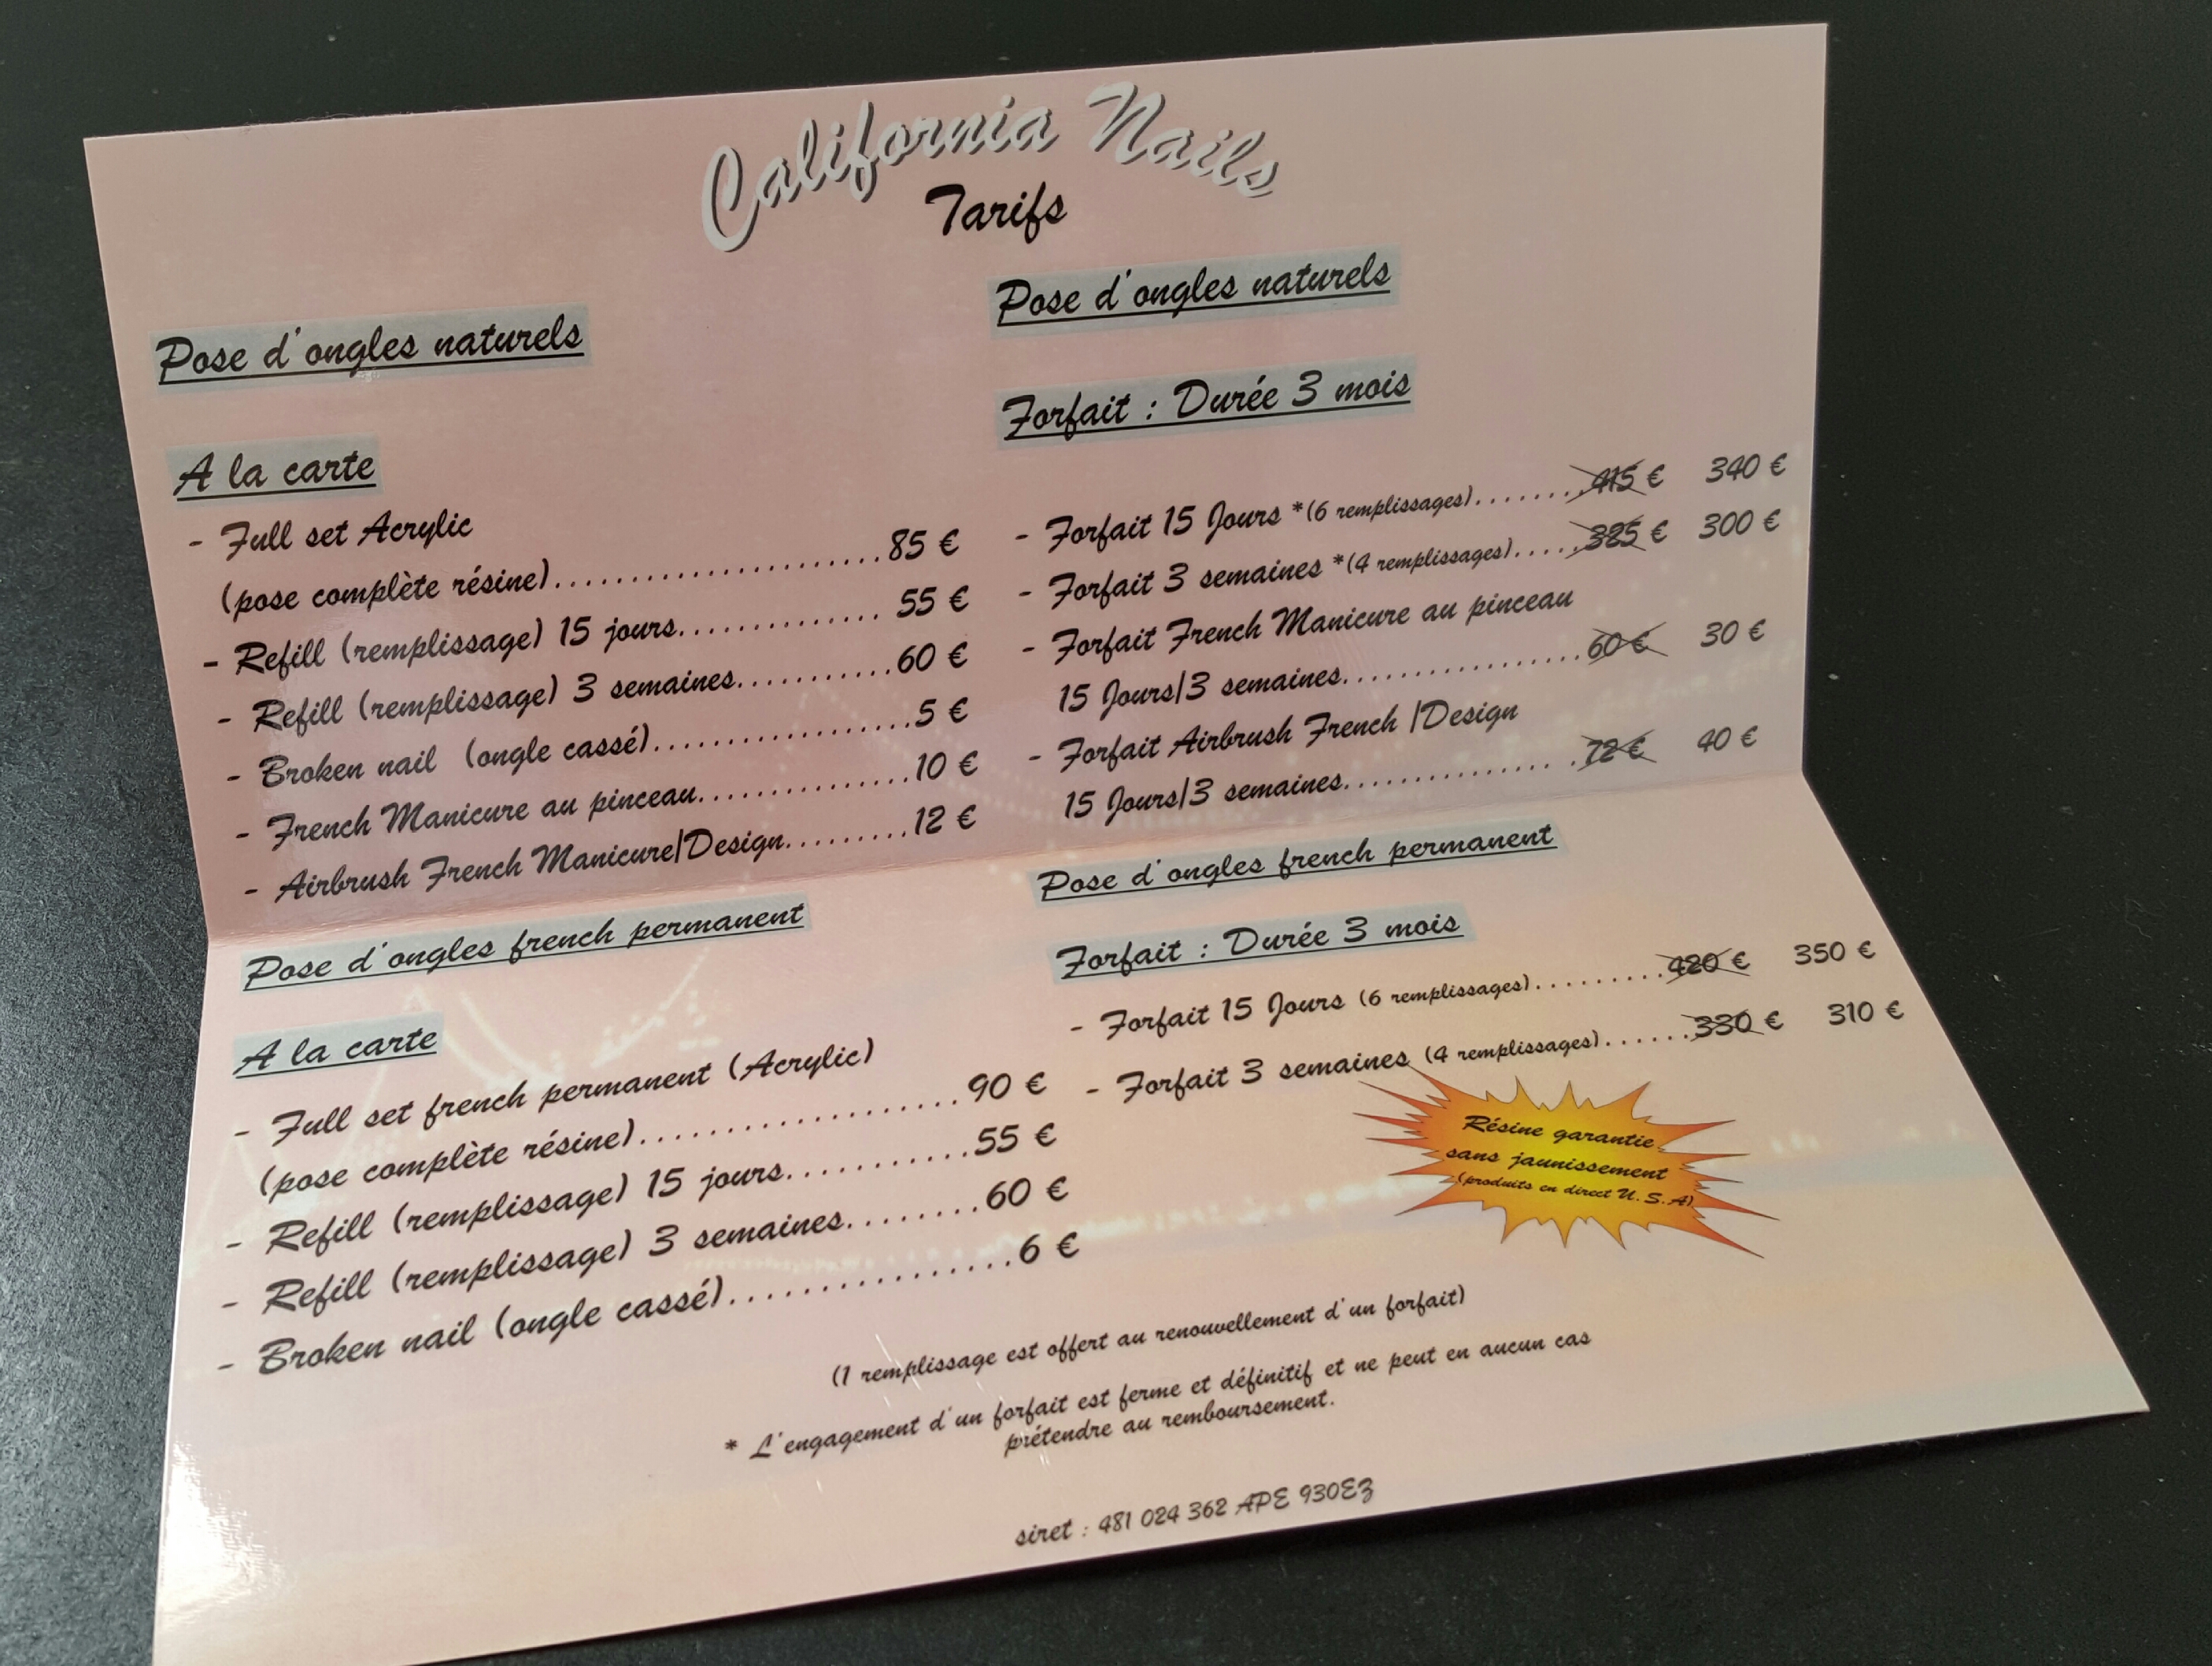 California Nails
Tarifs
Pose d'ongles naturels
A la carte
- Full set Acrylic
(pose complète résine)......................85 €
- Refill (remplissage) 15 jours.............. 55 €
- Refill (remplissage) 3 semaines...........60 €
- Broken nail (ongle cassé)..................5 €
- French Manicure au pinceau...............10 €
- Airbrush French Manicure/Design.........12 €
Pose d'ongles naturels
Forfait : Durée 3 mois
- Forfait 15 Jours *(6 remplissages)........415 € 340 €
- Forfait 3 semaines *(4 remplissages)......325 € 300 €
- Forfait French Manicure au pinceau
15 Jours/3 semaines................60 € 30 €
- Forfait Airbrush French /Design
15 Jours/3 semaines............... .72 € 40 €
Pose d'ongles french permanent
A la carte
- Full set french permanent (Acrylic)
(pose complète résine)...................90 €
- Refill (remplissage) 15 jours...........55 €
- Refill (remplissage) 3 semaines........60 €
- Broken nail (ongle cassé).................6 €
Pose d'ongles french permanent
Forfait : Durée 3 mois
- Forfait 15 Jours (6 remplissages).........420 € 350 €
- Forfait 3 semaines (4 remplissages)......330 € 310 €
Résine garantie
sans jaunissement
(produits en direct U.S.A)
(1 remplissage est offert au renouvellement d'un forfait)
* L'engagement d'un forfait est ferme et définitif et ne peut en aucun cas
prétendre au remboursement.
siret : 481 024 362 APE 930EZ